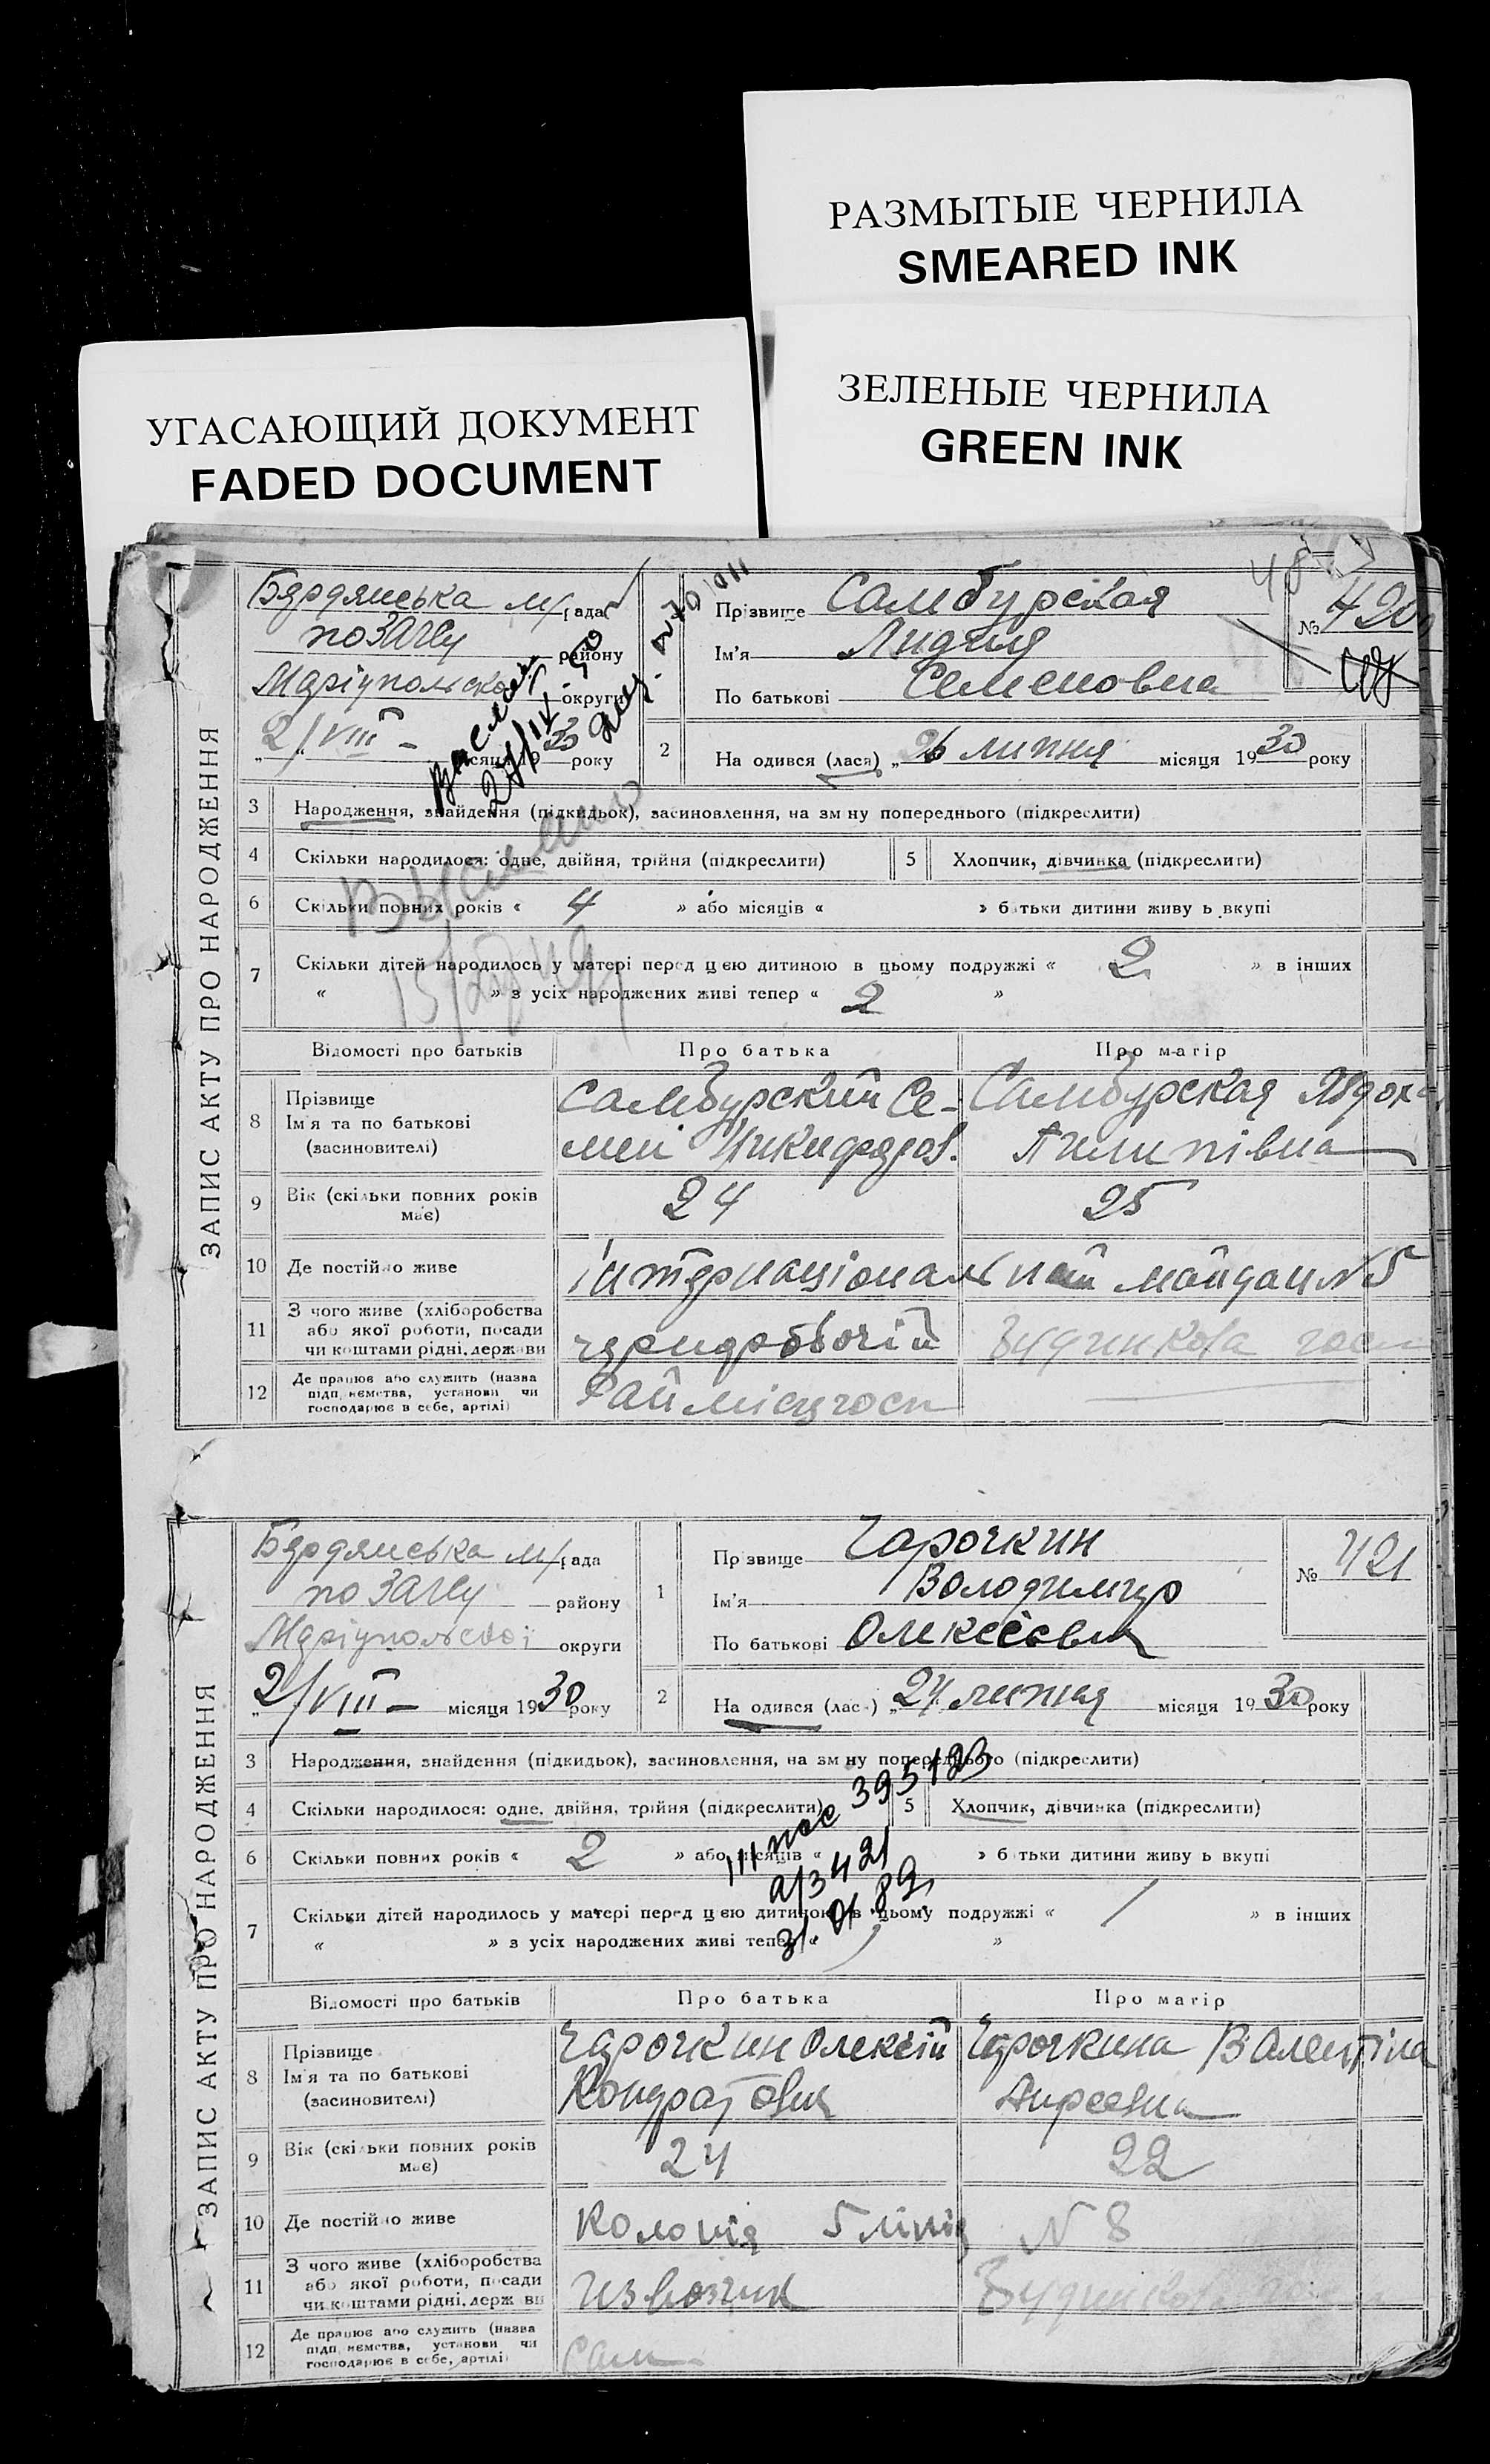 РАЗМЫТЫЕ ЧЕРНИЛА
SMEARED INK
ЗЕЛЕНЫЕ ЧЕРНИЛА
GREEN INK
УГАСАЮЩИЙ ДОКУМЕНТ
FADED DOCUMENT
ЗАПИС АКТУ ПРО НАРОДЖЕННЯ
Бердянська м/рада
по ЗАГСу району
Маріупольська округи
2/VIII – місяця 1930 року
Прізвище Самбурская
Ім'я Лидия
По батькові Семеновна
№ 420
2 На одився (лася) „26 липня місяця 1930 року
3 Народження, знайдення (підкидьок), засиновлення, на зм ну попереднього (підкреслити)
4 Скільки народилося: одне, двійня, трійня (підкреслити)
5 Хлопчик, дівчинка (підкреслити)
6 Скільки повних років « 4 » або місяців « » б тьки дитини живу ь вкупі
7 Скільки дітей народилось у матері перед цією дитиною в цьому подружжі « 2 » в інших
« » з усіх народжених живі тепер « 2 »
Відомості про батьків Про батька Про матір
8 Прізвище Ім'я та по батькові (засиновителі)
Самбурский Се-
мен Никифоров.
Самбурская Явдоха
Пилипівна
9 Вік (скільки повних років має) 24 25
10 Де постійно живе інтернаціональний майдан N 5
11 З чого живе (хліборобства
або якої роботи, посади
чи коштами рідні, держави
черноробочій
12 Де працює або служить (назва
підп иємства, установи чи
господарює в себе, артілі)
Райміскгосп
ЗАПИС АКТУ ПРО НАРОДЖЕННЯ
Бердянська м/рада
по ЗАГСу району
Маріупольської округи
2/VIII – місяця 1930 року
1 Пр звище Чарочкин
Ім'я Володимир
По батькові Олексієвич
№ 421
2 На одився (лас ) „24 липня місяця 1930 року
3 Народження, знайдення (підкидьок), засиновлення, на зм ну попереднього (підкреслити)
4 Скільки народилося: одне, двійня, трійня (підкреслити)
5 Хлопчик, дівчинка (підкреслити)
6 Скільки повних років « 2 » або місяців « » б тьки дитини живу ь вкупі
7 Скільки дітей народилось у матері перед цією дитиною в цьому подружжі « / » в інших
« » з усіх народжених живі тепер « »
395123
а/з 421
31. 01 89
Відомості про батьків Про батька Про матір
8 Прізвище Ім'я та по батькові (засиновителі)
Чарочкин Олексій
Кондратович
Чарочкина Валентіна
Андреевна
9 Вік (скільки повних років має) 24 22
10 Де постійно живе Колонія 5 лінія N 8
11 З чого живе (хліборобства
або якої роботи, посади
чи коштами рідні, держ ви
Извозчик
12 Де працює або служить (назва
підп иємства, установи чи
господарює в себе, артілі)
Сам